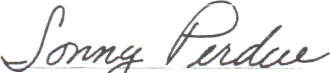 Sonny Perdue